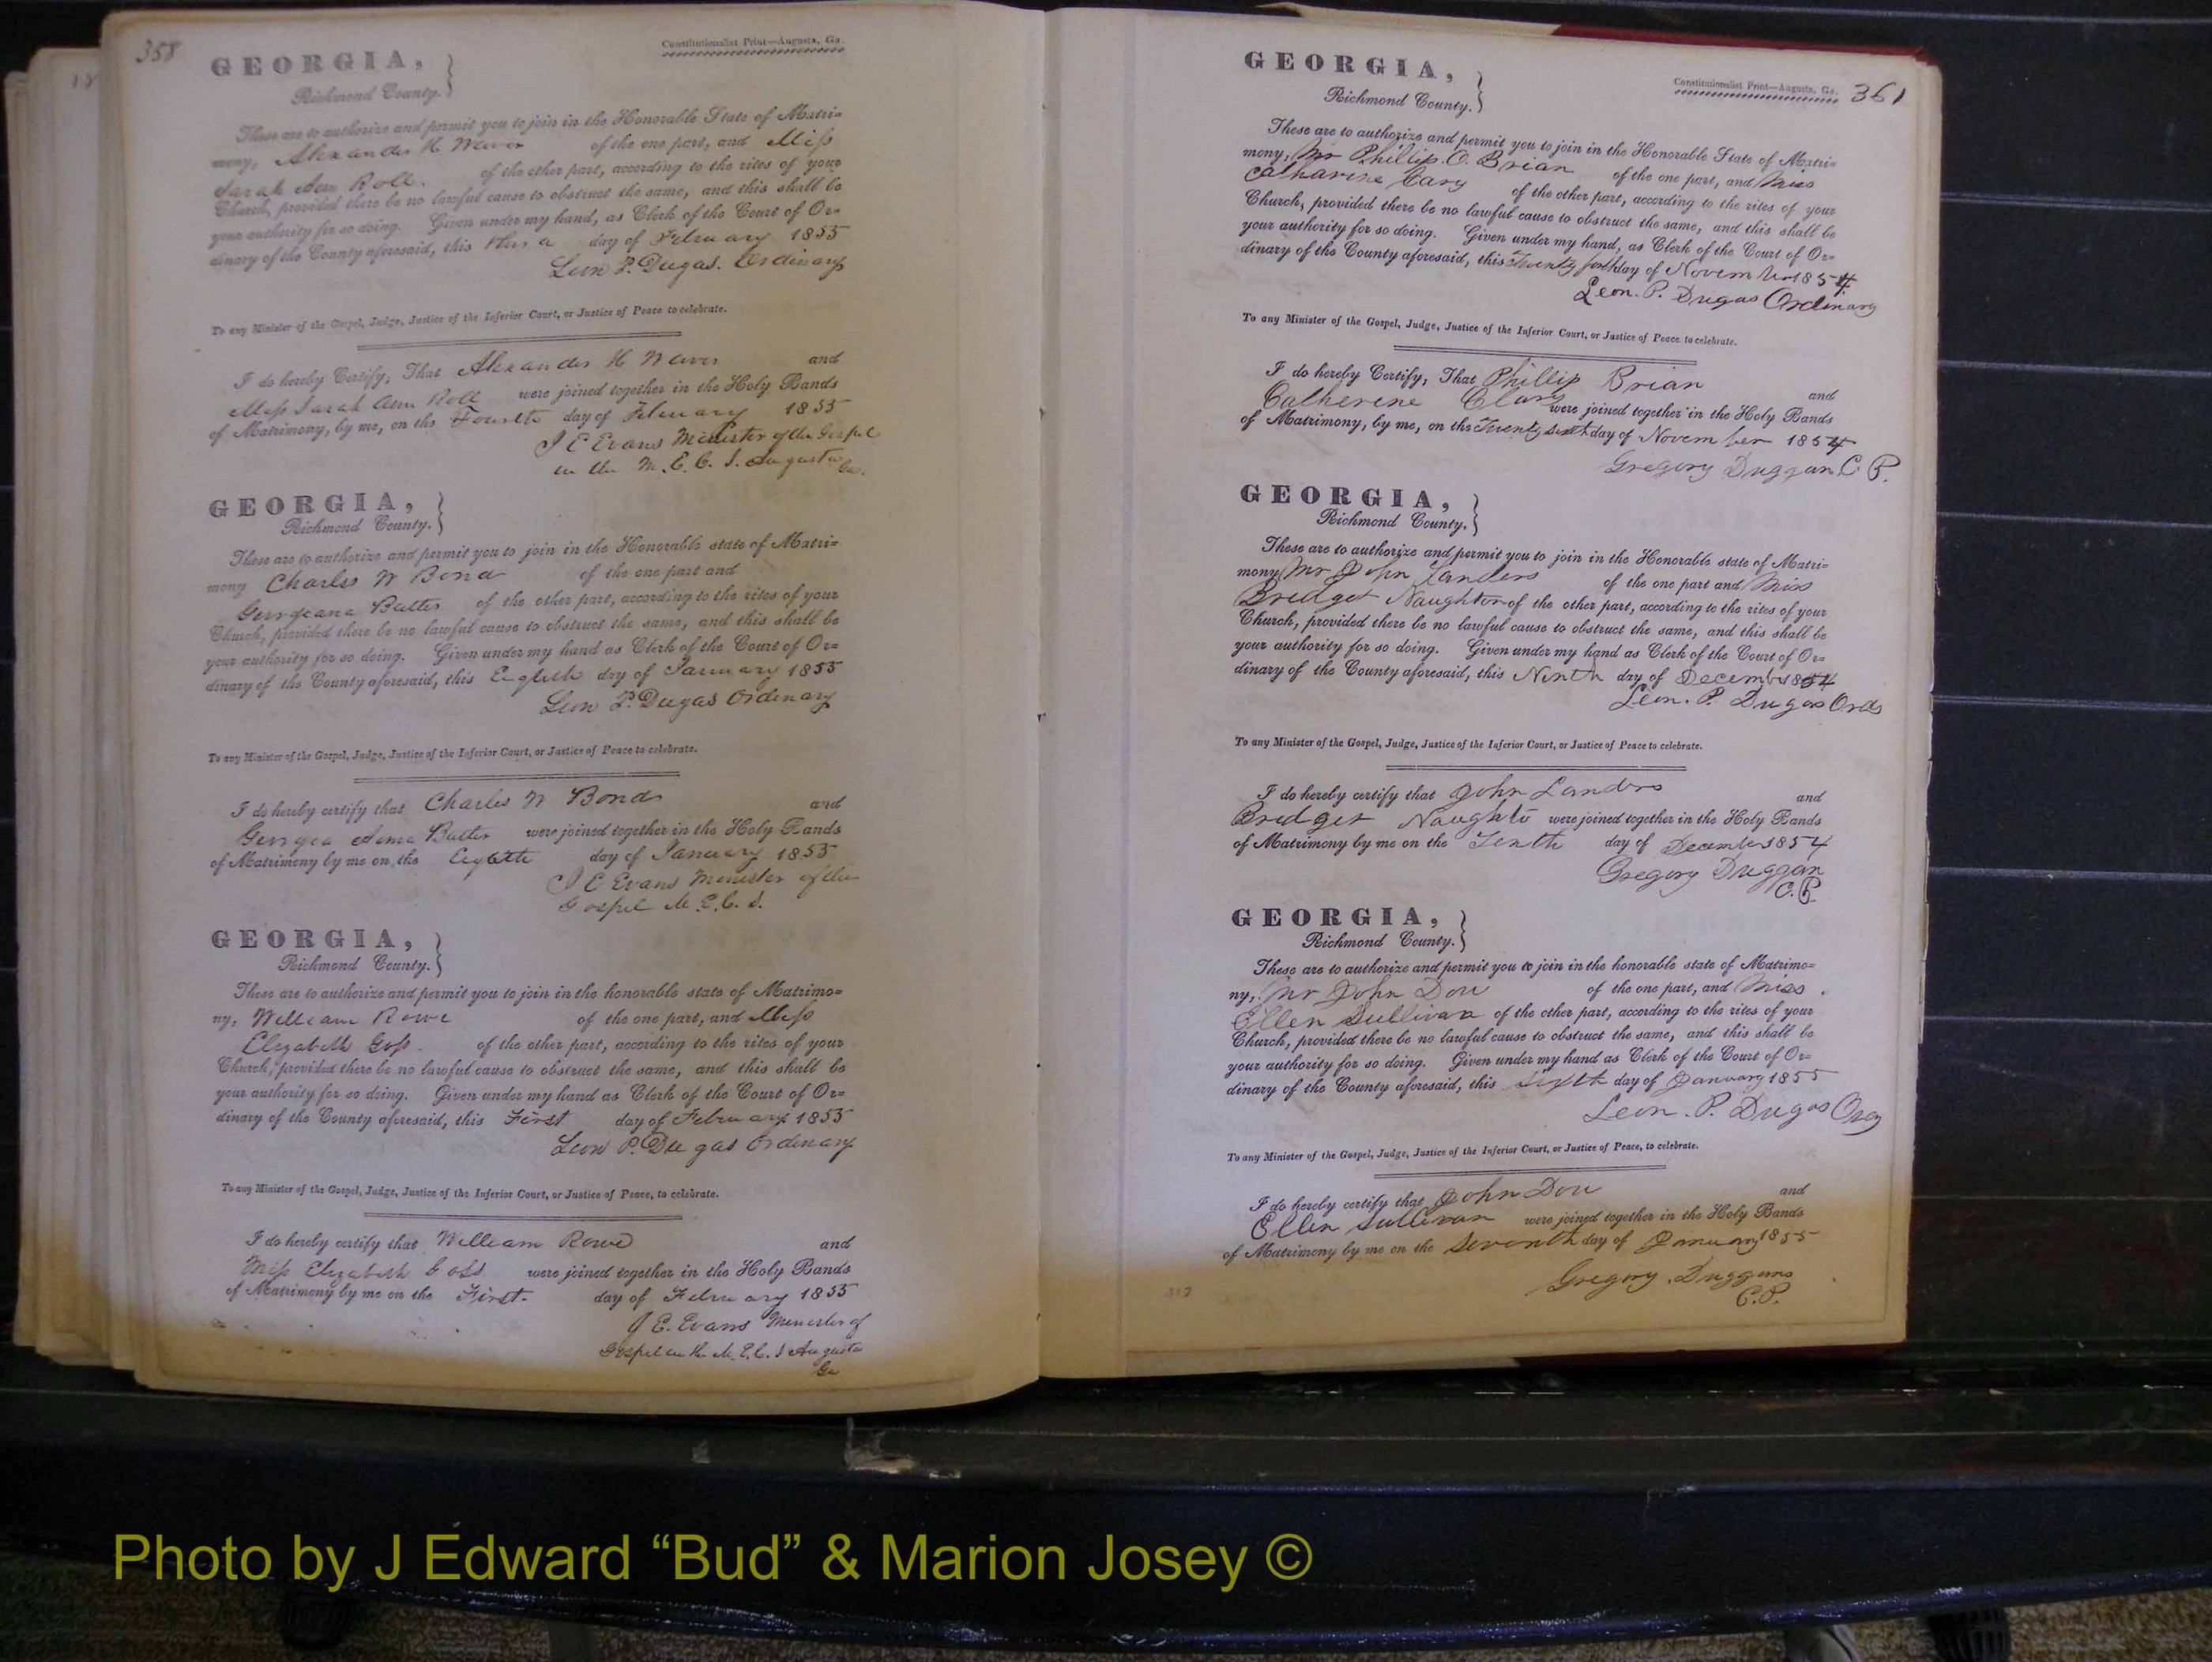 358
Constitutionalist Print—Augusta, Ga.
GEORGIA,
Richmond County.
These are to authorize and permit you to join in the Honorable State of Matri=
mony, Alexander H Waver of the one part, and Miss
Sarah Ann Roll. of the other part, according to the rites of your
Church, provided there be no lawful cause to obstruct the same, and this shall be
your authority for so doing. Given under my hand, as Clerk of the Court of Or=
dinary of the County aforesaid, this day of February 1855
Leon P. Dugas. Ordinary
To any Minister of the Gospel, Judge, Justice of the Inferior Court, or Justice of Peace to celebrate.
I do hereby Certify, That Alexander H Waver and
Miss Sarah Ann Roll were joined together in the Holy Bands
of Matrimony, by me, on the Fourth day of February 1855
J E Evans Minister of the Gospel
in the M. E. C. S. Augusta Ga.
GEORGIA,
Richmond County.
These are to authorize and permit you to join in the Honorable state of Matri=
mony Charles W Bond of the one part and
Georgeana Butler of the other part, according to the rites of your
Church, provided there be no lawful cause to obstruct the same, and this shall be
your authority for so doing. Given under my hand as Clerk of the Court of Or=
dinary of the County aforesaid, this Eighth day of January 1855
Leon P. Dugas Ordinary
To any Minister of the Gospel, Judge, Justice of the Inferior Court, or Justice of Peace to celebrate.
I do hereby certify that Charles W Bond and
Georgea Anna Butler were joined together in the Holy Bands
of Matrimony by me on the Eighth day of January 1855
J E Evans Minister of the
Gospel M. E. C. S.
GEORGIA,
Richmond County.
These are to authorize and permit you to join in the honorable state of Matrimo=
ny, William Rowe of the one part, and Miss
Elizabeth Goss. of the other part, according to the rites of your
Church, provided there be no lawful cause to obstruct the same, and this shall be
your authority for so doing. Given under my hand as Clerk of the Court of Or=
dinary of the County aforesaid, this First day of February 1855
Leon P. Dugas Ordinary
To any Minister of the Gospel, Judge, Justice of the Inferior Court, or Justice of Peace, to celebrate.
I do hereby certify that William Rowe and
Miss Elizabeth Goss were joined together in the Holy Bands
of Matrimony by me on the First. day of February 1855
J E. Evans Minister of
Gospel in the M. E. C. S Augusta
Ga
361
Constitutionalist Print—Augusta, Ga.
GEORGIA,
Richmond County.
These are to authorize and permit you to join in the Honorable State of Matri=
mony, Mr Phillip. O. Brian of the one part, and Miss
Catharine Cary of the other part, according to the rites of your
Church, provided there be no lawful cause to obstruct the same, and this shall be
your authority for so doing. Given under my hand, as Clerk of the Court of Or=
dinary of the County aforesaid, this Twenty day of November 1854.
Leon. P. Dugas Ordinary
To any Minister of the Gospel, Judge, Justice of the Inferior Court, or Justice of Peace to celebrate.
I do hereby Certify, That Phillip Brian and
Catherine Clary were joined together in the Holy Bands
of Matrimony, by me, on the Twenty sixth day of November 1854
Gregory Duggan C. P.
GEORGIA,
Richmond County.
These are to authorize and permit you to join in the Honorable state of Matri=
mony Mr John Landers of the one part and Miss
Bridget Naughton of the other part, according to the rites of your
Church, provided there be no lawful cause to obstruct the same, and this shall be
your authority for so doing. Given under my hand as Clerk of the Court of Or=
dinary of the County aforesaid, this Ninth day of December 1854
Leon. P. Dugas Ord
To any Minister of the Gospel, Judge, Justice of the Inferior Court, or Justice of Peace to celebrate.
I do hereby certify that John Landers and
Bridget Naughto were joined together in the Holy Bands
of Matrimony by me on the Tenth day of December 1854
Gregory Duggan
C. P.
GEORGIA,
Richmond County.
These are to authorize and permit you to join in the honorable state of Matrimo=
ny, Mr John Dou of the one part, and Miss
Ellen Sullivan of the other part, according to the rites of your
Church, provided there be no lawful cause to obstruct the same, and this shall be
your authority for so doing. Given under my hand as Clerk of the Court of Or=
dinary of the County aforesaid, this Sixth day of January 1855
Leon. P. Dugas Ordy
To any Minister of the Gospel, Judge, Justice of the Inferior Court, or Justice of Peace, to celebrate.
I do hereby certify that John Dou and
Ellen Sullivan were joined together in the Holy Bands
of Matrimony by me on the Seventh day of January 1855
Gregory. Duggans
C. P.
Photo by J Edward “Bud” & Marion Josey ©